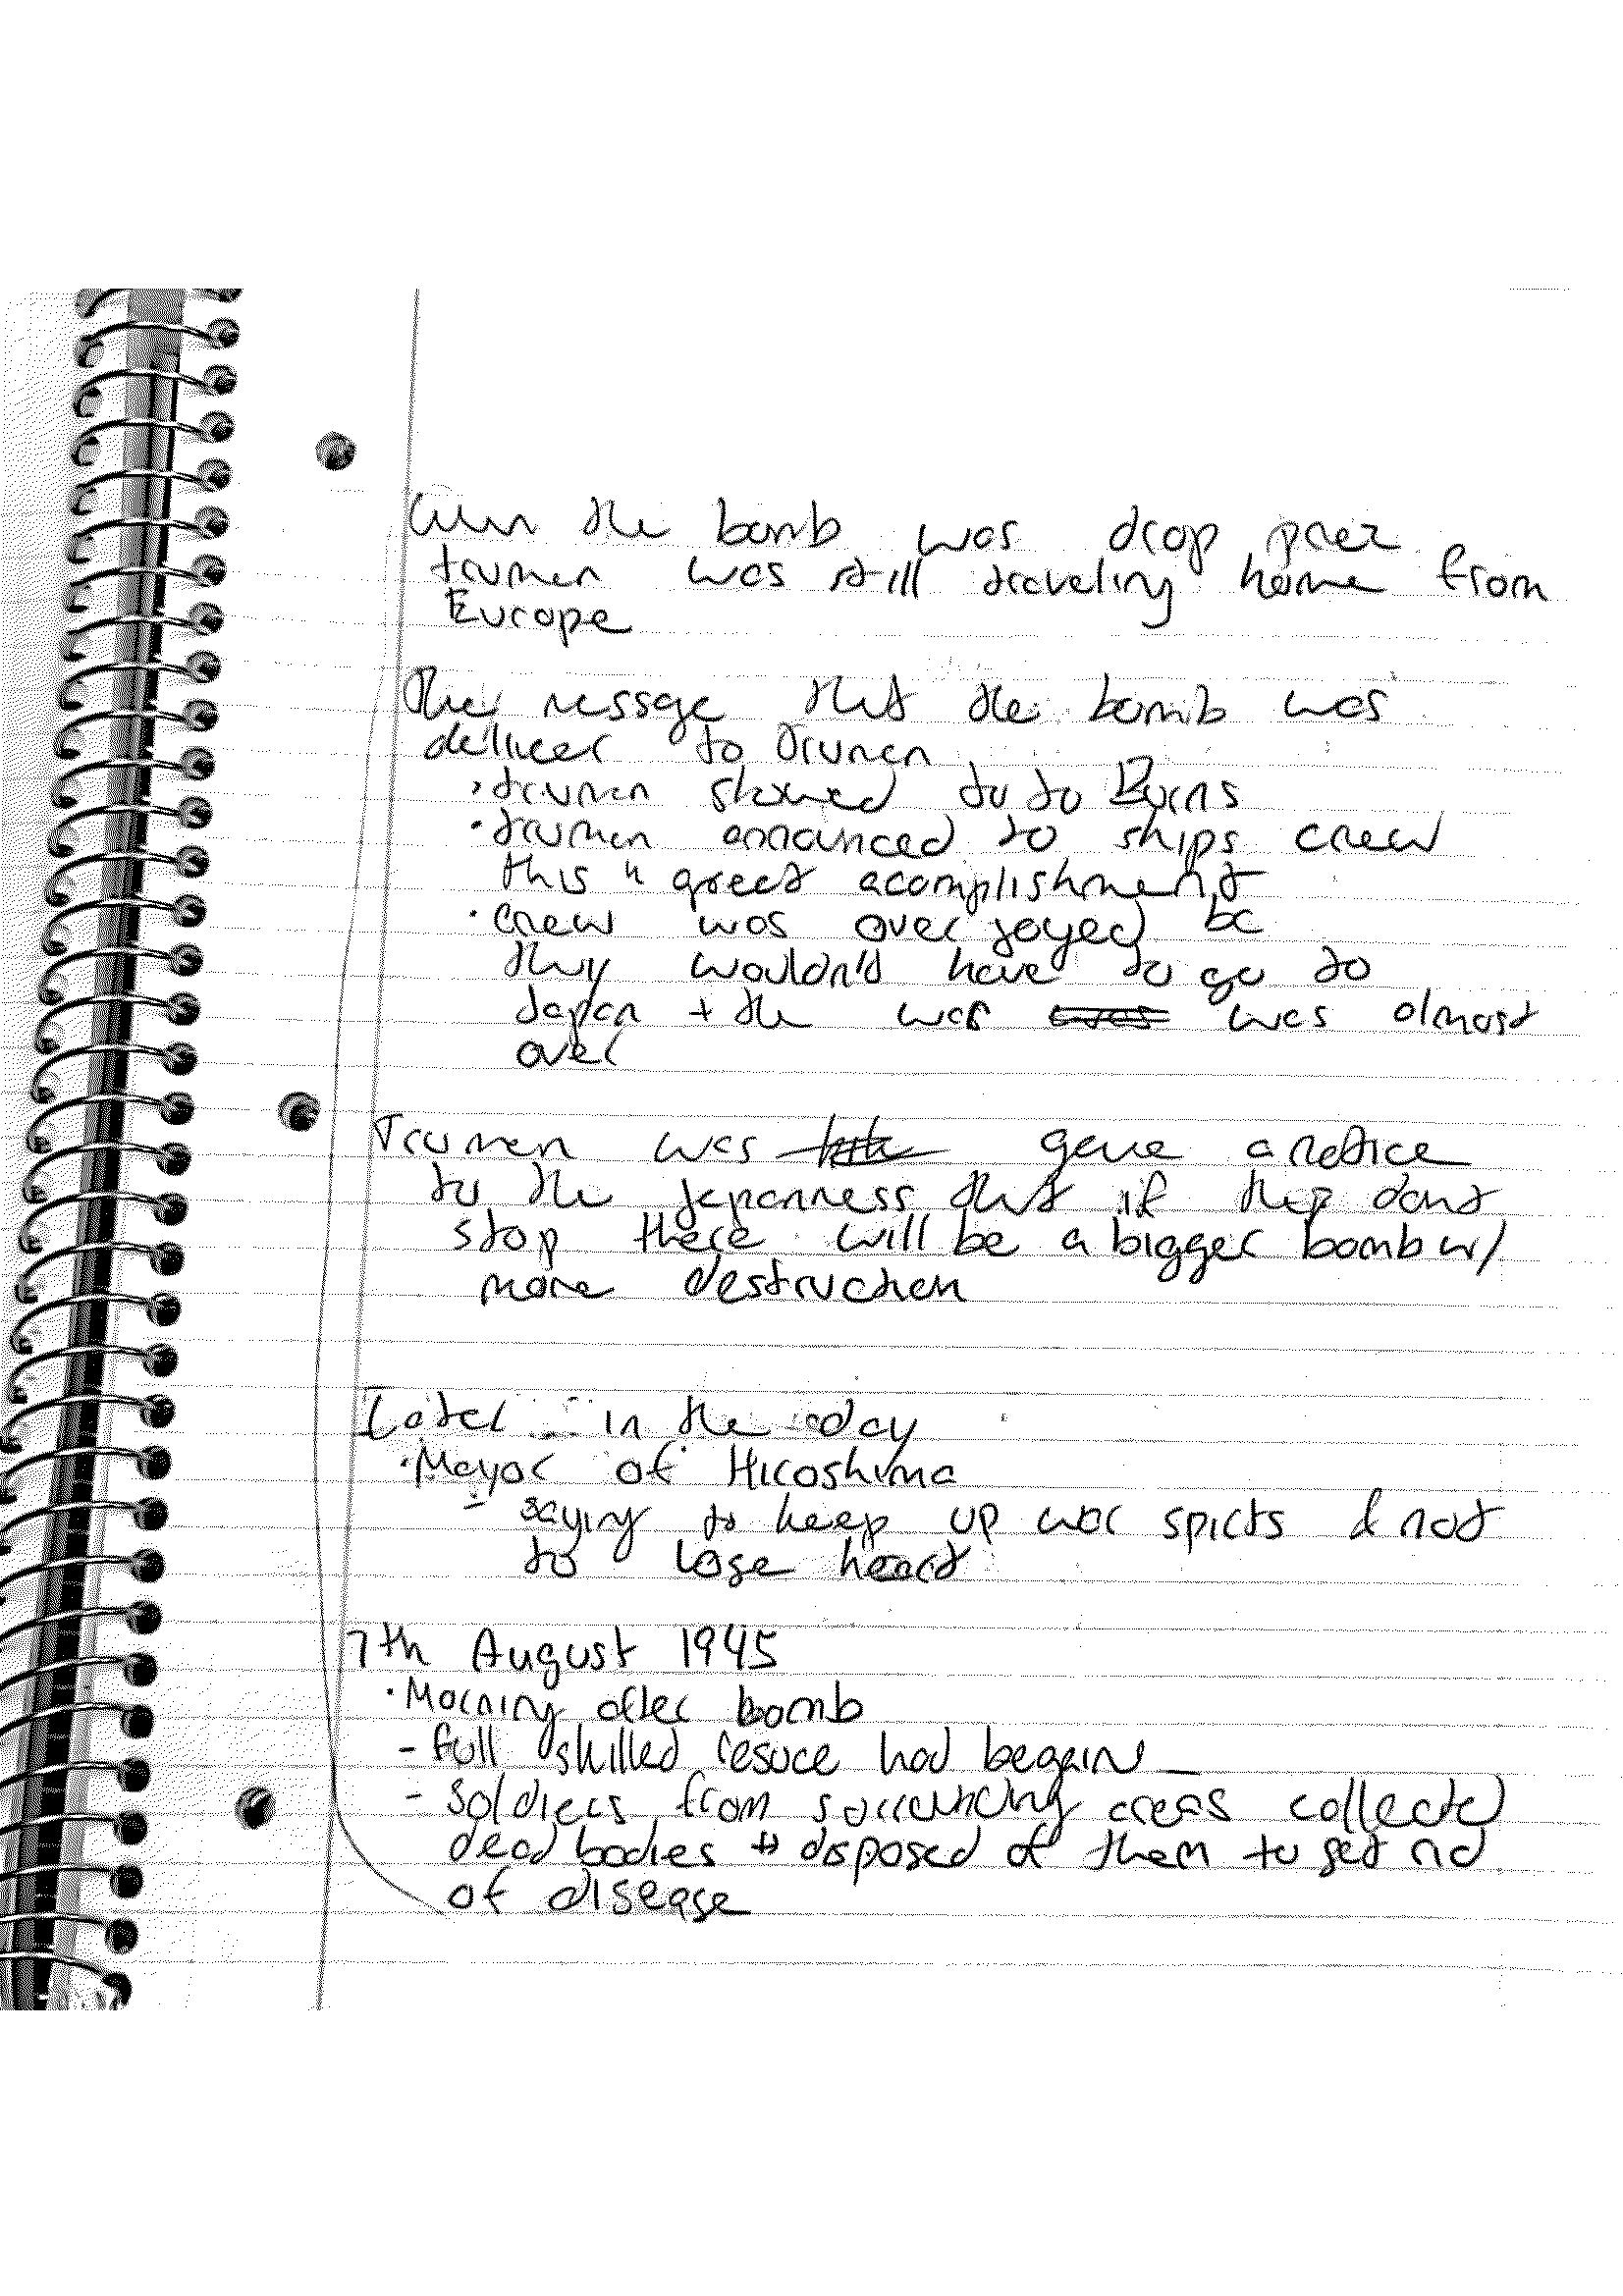 When the bomb was drop prez
trumen was still traveling home from
Europe
The messege that the bomb was
deliver to Trumen
• trumen showed to to Byrns
• trumen announced to ships crew
this " great acomplishment
• crew was over joyed bc
they wouldn't have to go to
Japan + the war was was almost
over
Trumen was gave a notice
to the Japanness that if they dont
stop there will be a bigger bomb w/
more destruction
Later in the day
• Mayor of Hiroshima
- saying to keep up war spirts & not
to lose heart
7th August 1945
• Morning after bomb
- full skilled resuce had begain
- soldiers from surrounding areas collected
dead bodies + disposed of them to get rid
of disease